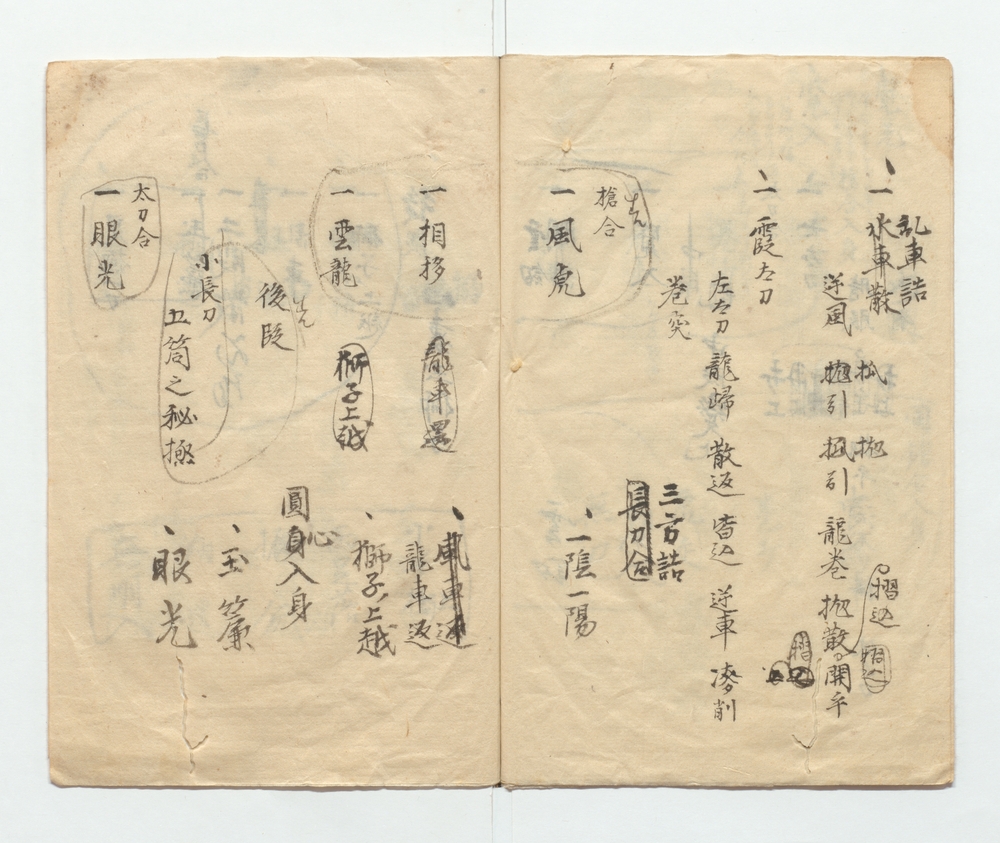 乱車詰
一 水車散
逆風
拋引
龍巻
摺込
開手
一 霞太刀
左太刀 龍歸 散返 逆車 凌削
巻突
三方詰
長刀合
槍合
一 風虎
一陰一陽
一 相移
龍車還
風車返
龍車返
一 雲龍
獅子上越
獅子上越
後段
圓身入身
心
小長刀
五箇之秘極
玉簾
太刀合
一 眼光
眼光